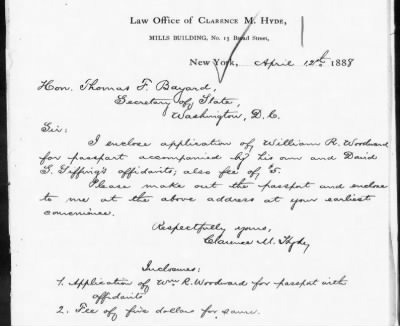 Law Office of CLARENCE M. HYDE,
MILLS BUILDING, No. 15 Broad Street,
New York, April 12th 1888
Hon. Thomas F. Bayard,
Secretary of State,
Washington, D.C.
Sir:
I enclose application of William R. Woodward
for passport accompanied by his own and David
S. affidavits; also fee of $5.
Please make out the passport and enclose
to me at the above address at your earliest
convenience.
Respectfully yours,
Clarence M. Hyde
Inclosures:
1. Application of Wm R. Woodward for passport with
affidavits
2. Fee of five dollars for same.